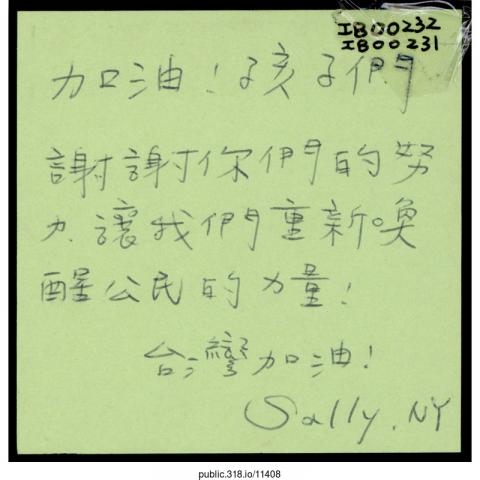 IB00232
IB00231
加油！孩子們
謝謝你們的努
力.讓我們重新喚
醒公民的力量！
台灣加油！
Sally, NY
public.318.io/11408